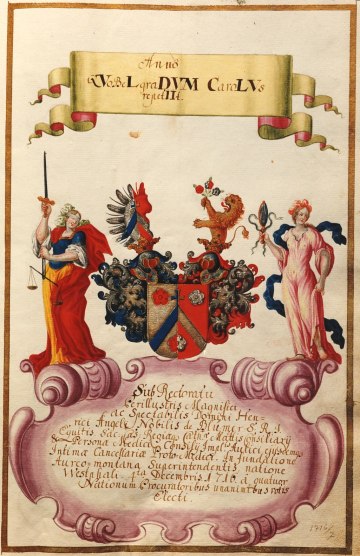 Anno
QVo BeLgraDVM CaroLVs
regetIIt.
Sub Rectoratu
Perillustris Magnifici
ac Spectabilis Domini Hen-
rici Angeli Nobilis de Blumer S. R. I.
Equitis Sacrae Regiaeq Cathae Mattis Consiliarij
Personae Medici, Consilij Impl: Aulici ejusdemq
Intimae Cancellariae Proto-Medici. In fundatione
Aureo-montana Superintendentis natione
Westphali. 4ta Decembris 1710. à quatuor
Nationum Procuratoribus unanimibus votis
Electi.